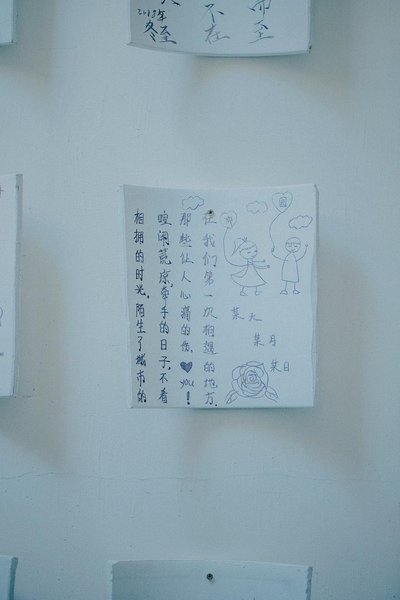 而至
不在
2013年
冬至
在我们第一次相遇的地方.
那些让人心痛的伤, you!
喧闹荒凉,牵手的日子,不看
相拥的时光,陌生了城市的
某天
某月
某日